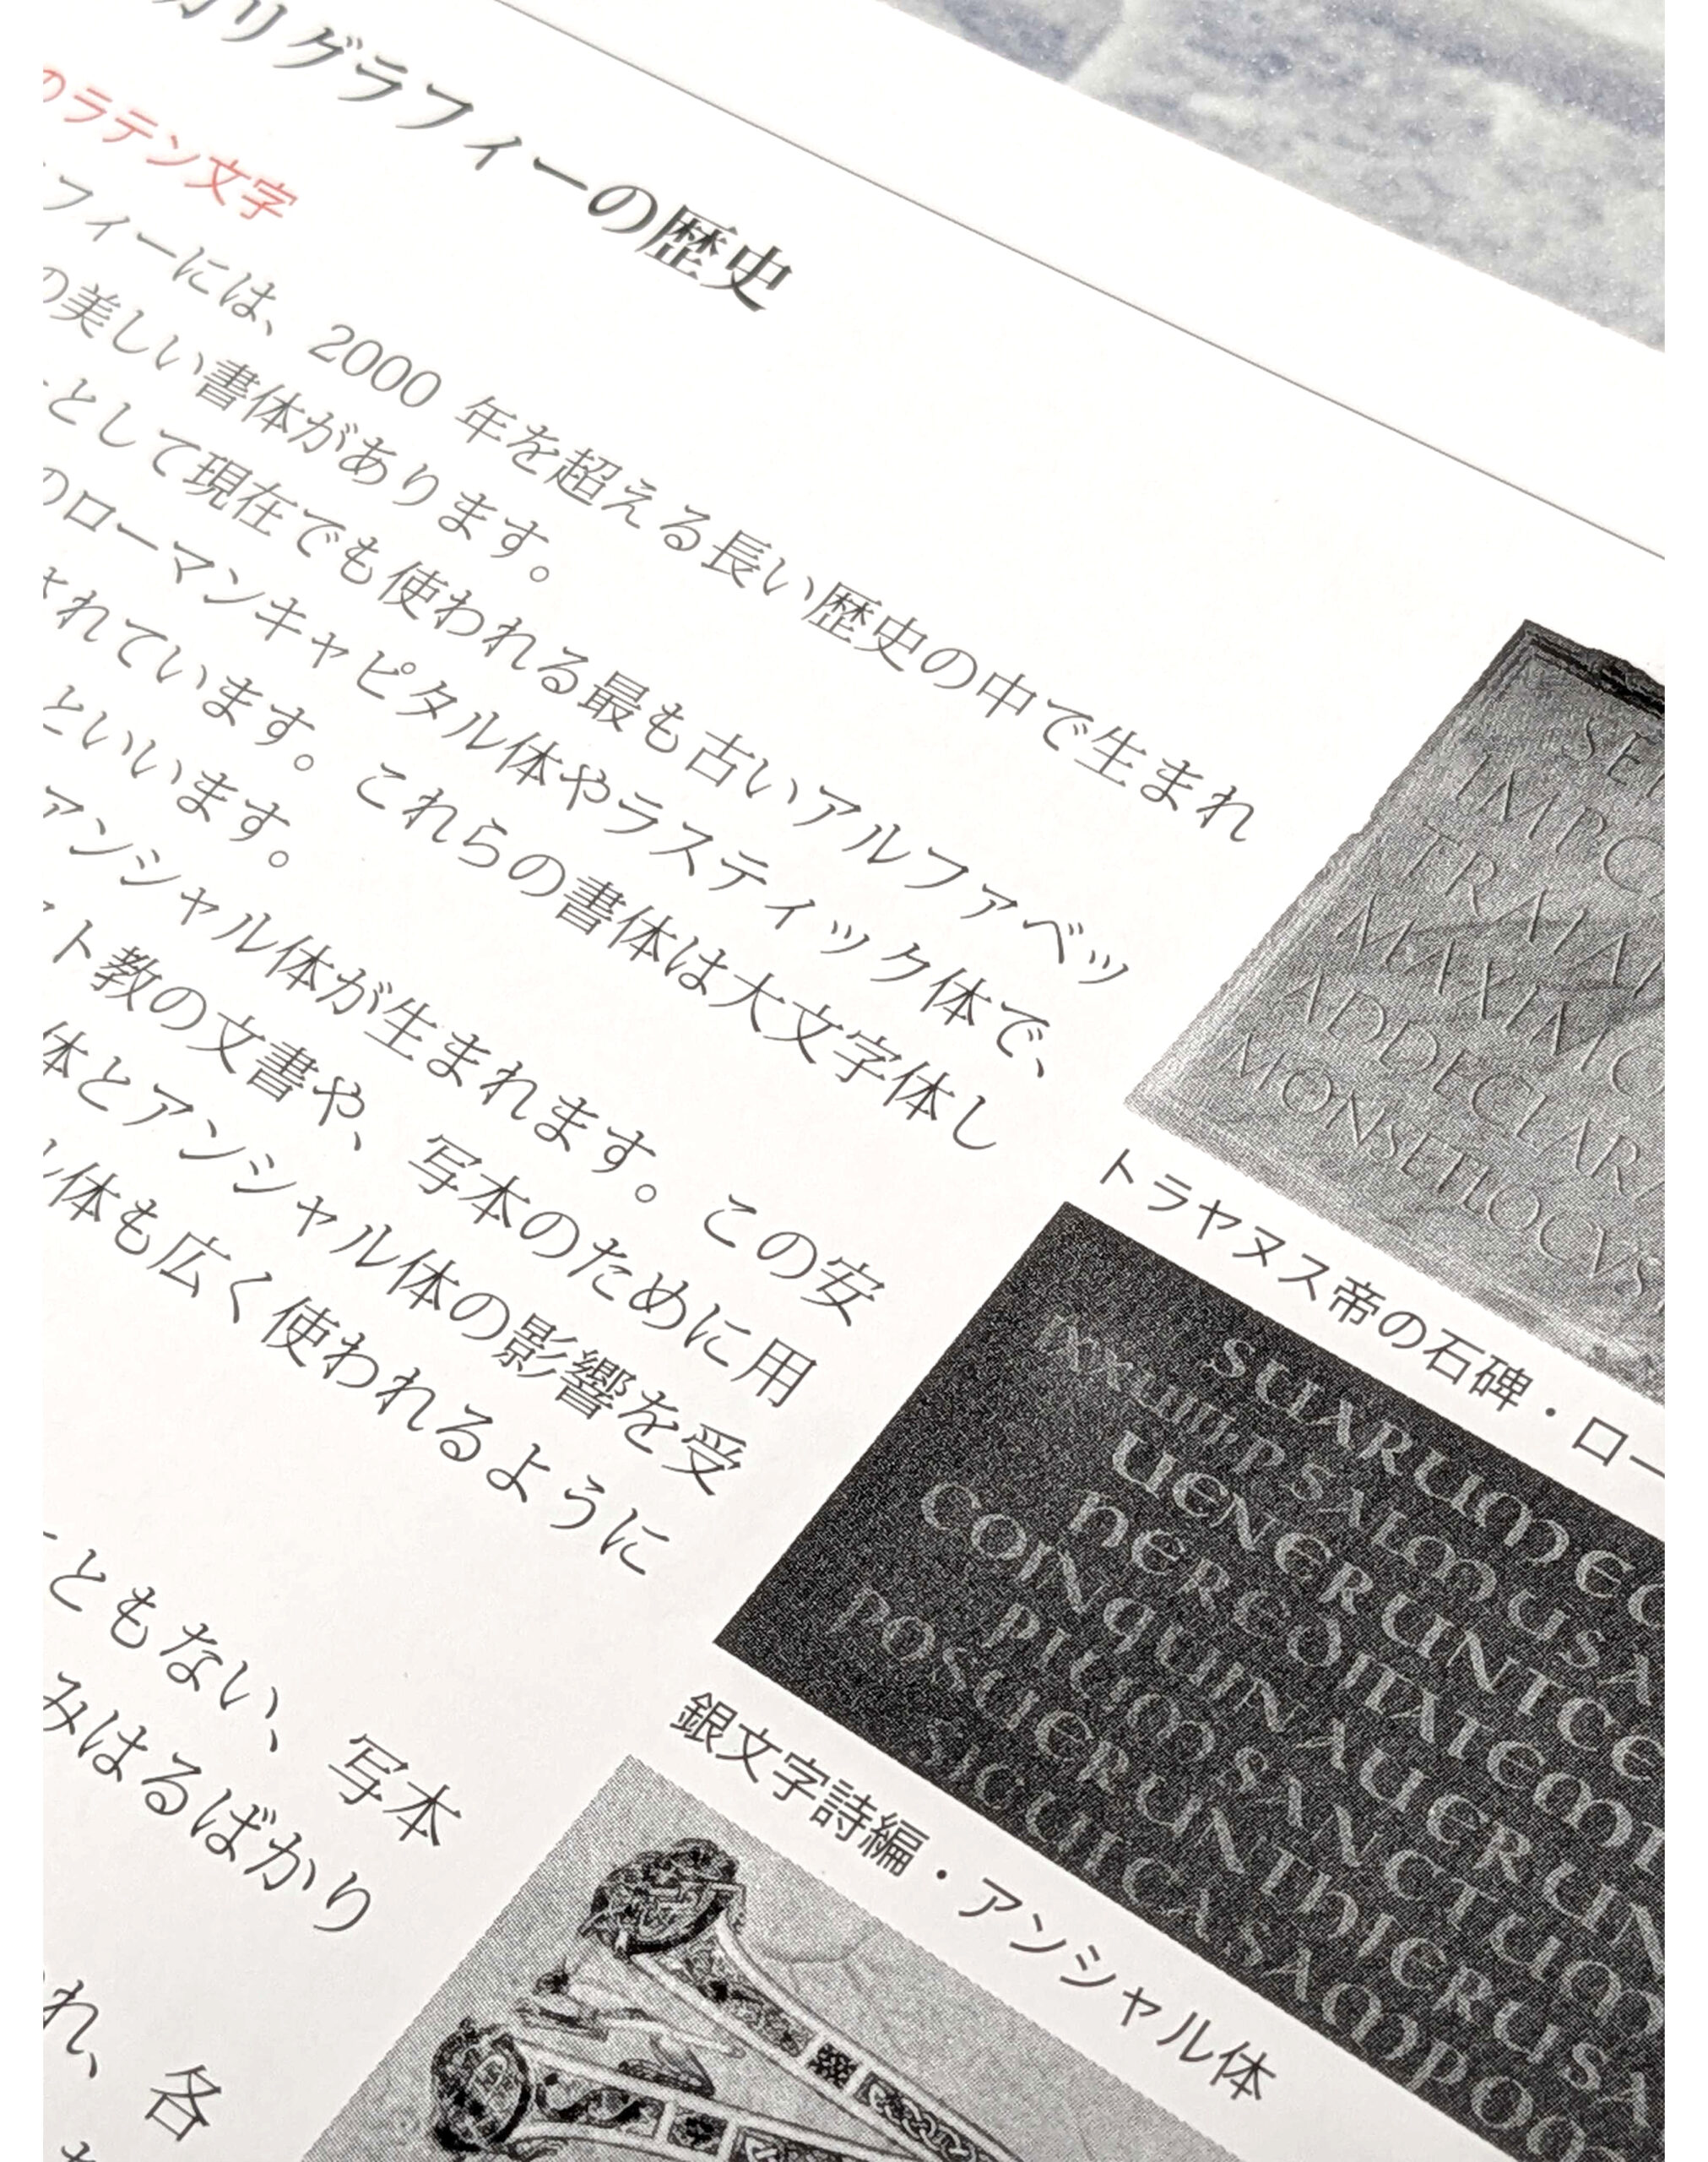 カリグラフィーの歴史
のラテン文字
フィーには、2000 年を超える長い歴史の中で生まれ
の美しい書体があります。
として現在でも使われる最も古いアルファベッ
のローマンキャピタル体やラスティック体で、
されています。これらの書体は大文字体し
といいます。
アンシャル体が生まれます。この安
ト教の文書や、写本のために用
体とアンシャル体の影響を受
ル体も広く使われるように
ともない、写本
みはるばかり
れ、各
SE
IMPCA
TRAIAN
MAXIMO
ADDECLARA
MONSETLOCVS
トラヤヌス帝の石碑・ロー
SUARUM
PSALMUSA
UENERUNTCE
NEREDITATEM
COINQUINAUERUN
PLUMSANCTUM
POSUERUNTHIERUSA
SICUTCASAMPO
銀文字詩編・アンシャル体